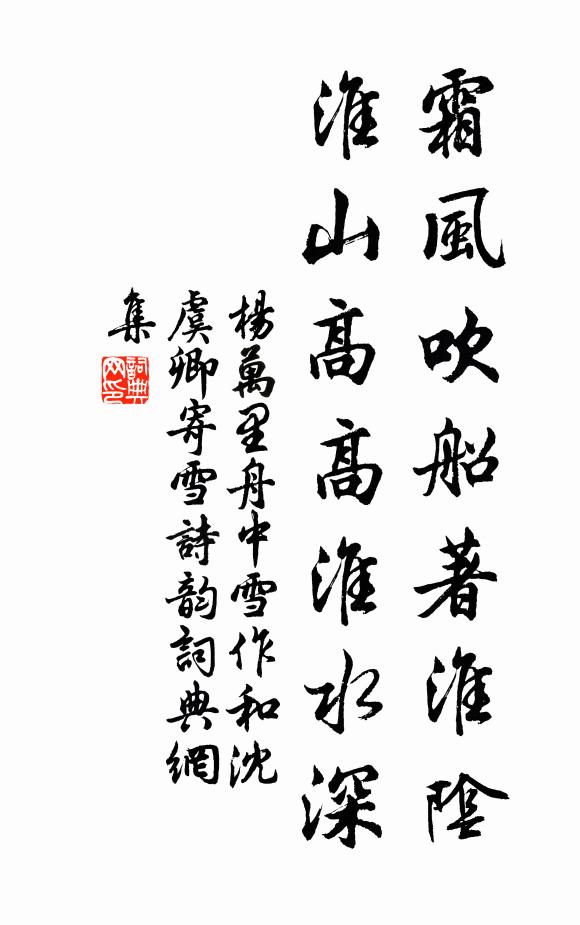 霜風吹船著淮陰
淮山高高淮水深
楊萬里舟中雪作和沈
虞卿寄雪詩韵詞典網
集
詞典
网印